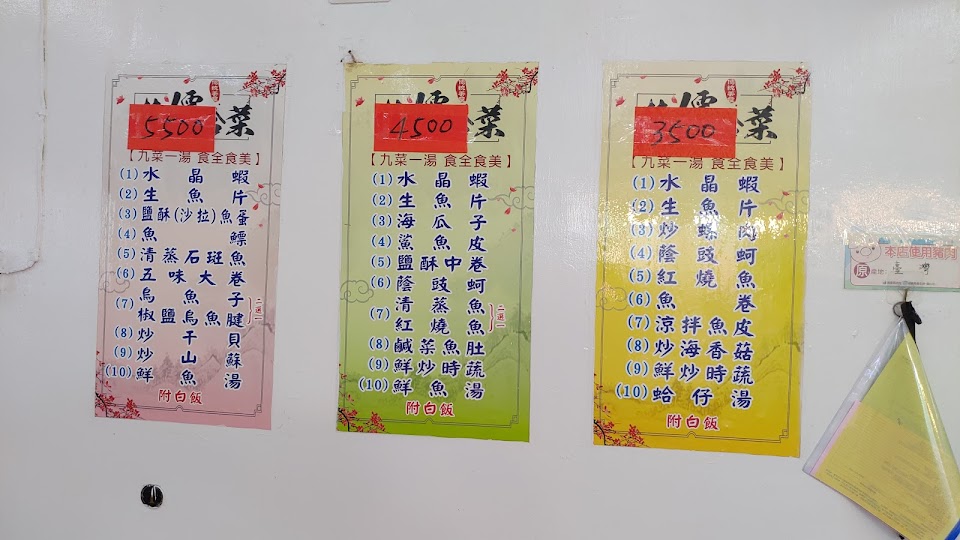 5500
菜
【九菜一湯 食全食美】
(1) 水晶蝦
(2) 生魚片
(3) 鹽酥(沙拉)魚蛋
(4) 魚鰾
(5) 清蒸石斑魚
(6) 五味大卷
(7) 烏魚子
椒鹽烏魚腱
二選一
(8) 炒干貝
(9) 炒山蘇
(10) 鮮魚湯
附白飯
4500
菜
【九菜一湯 食全食美】
(1) 水晶蝦
(2) 生魚片
(3) 海瓜子
(4) 鯊魚皮
(5) 鹽酥中卷
(6) 蔭豉蚵
(7) 清蒸魚
紅燒魚
二選一
(8) 鹹菜魚肚
(9) 鮮炒時蔬
(10) 鮮魚湯
附白飯
3500
菜
【九菜一湯 食全食美】
(1) 水晶蝦
(2) 生魚片
(3) 炒螺肉
(4) 蔭豉蚵
(5) 紅燒魚
(6) 魚卷
(7) 涼拌魚皮
(8) 炒海香菇
(9) 鮮炒時蔬
(10) 蛤仔湯
附白飯
本店使用豬肉
原 產地: 臺灣